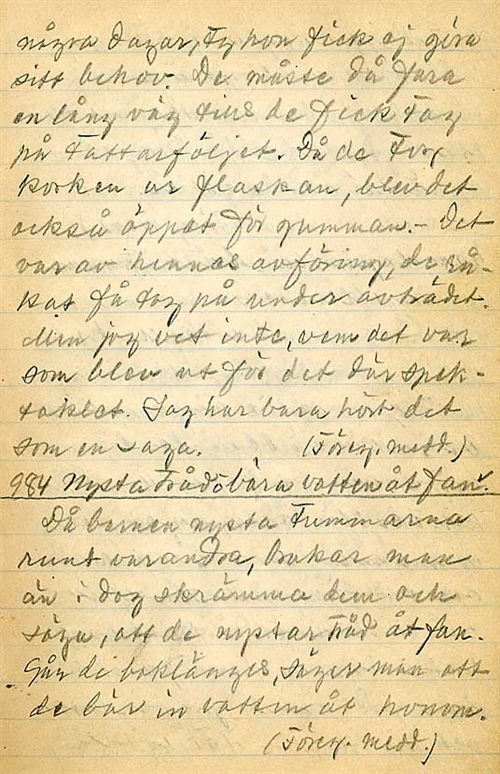 några dagar, ty hon fick ej göra
sitt behov. De måste då fara
en lång väg tills de fick tag
på tattarföljet. Då de tog
korken ur flaskan, blev det
också öppat för gumman. - Det
var av hennes avföring, de rå-
kat få tag på under avträdet.
Men jag vet inte, vem det var
som blev ut för det där spek-
taklet. Jag har bara hört det
som en saga. (Föreg. medd.)
984 Nysta tråd o bära vatten åt fan.
Då barnen nysta tummarna
runt varandra, brukar man
än i dag skrämma dem och
säga, att de nystar tråd åt fan.
Går de baklänges, säger man att
de bär in vatten åt honom.
(Föreg. medd.)